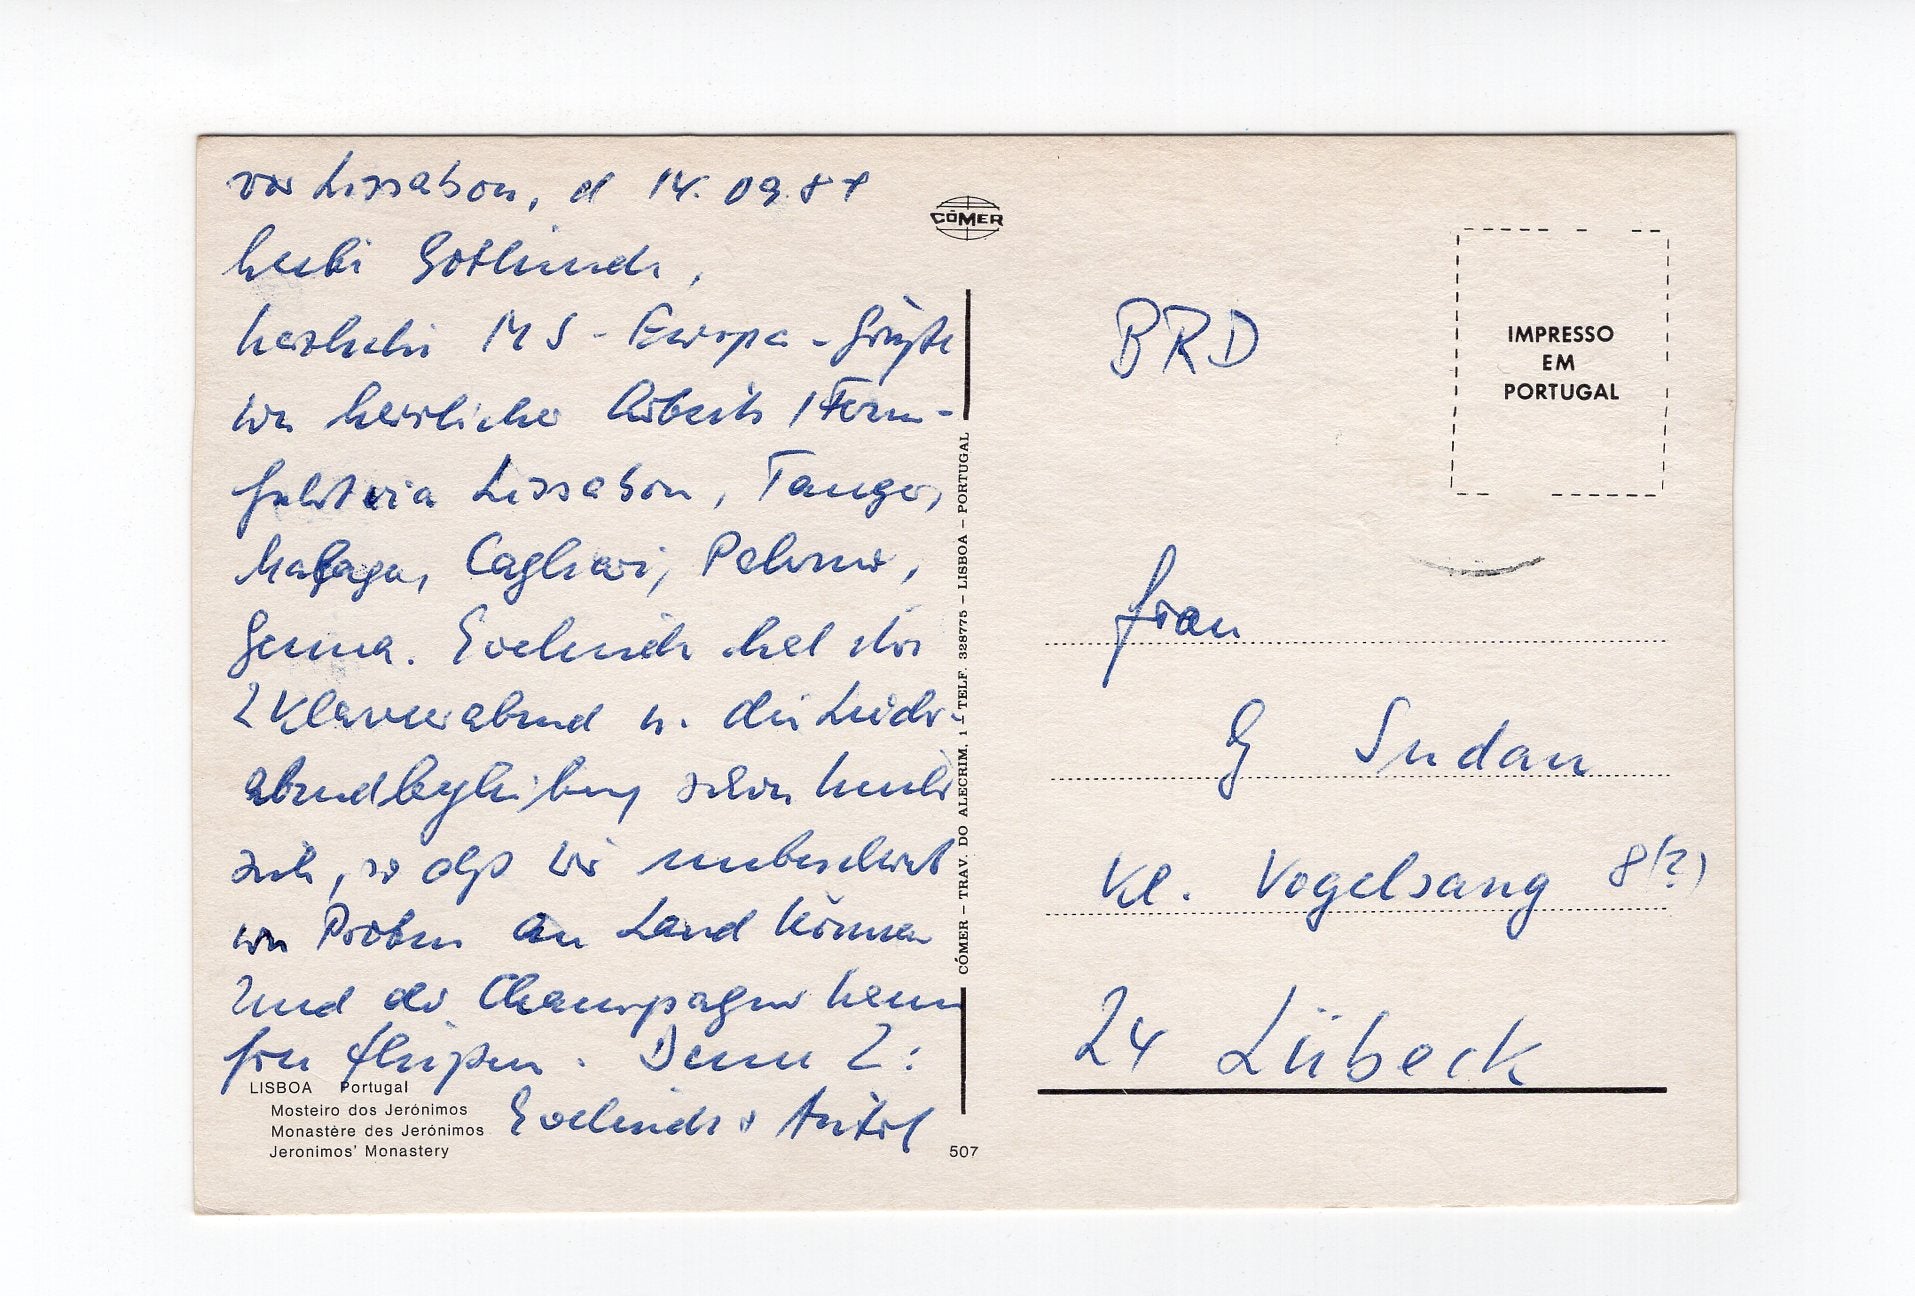 vor Lissabon, d 14. 09. 87
Liebe Gotlinde,
herzliche MS-Europa-Grüße
von herrlicher Arbeits / Ferien-
fahrt via Lissabon, Tanger,
Malaga, Cagliari, Palermo,
Genua. Evelinde hat ihre
2 Klavierabend u. die Lieder-
abendbegleitung schon hinter
sich, so daß wir unbeschwert
von Proben an Land können
und der Champagner kann
frei fließen. Deine 2:
Evelinde +
LISBOA Portugal
Mosteiro dos Jerónimos
Monastère des Jerónimos
Jeronimos' Monastery
507
CÓMER
CÓMER – TRAV. DO ALECRIM, 1 – TELF. 328775 – LISBOA – PORTUGAL
IMPRESSO
EM
PORTUGAL
BRD
Frau
G Sudau
Kl. Vogelsang 8(?)
24 Lübeck